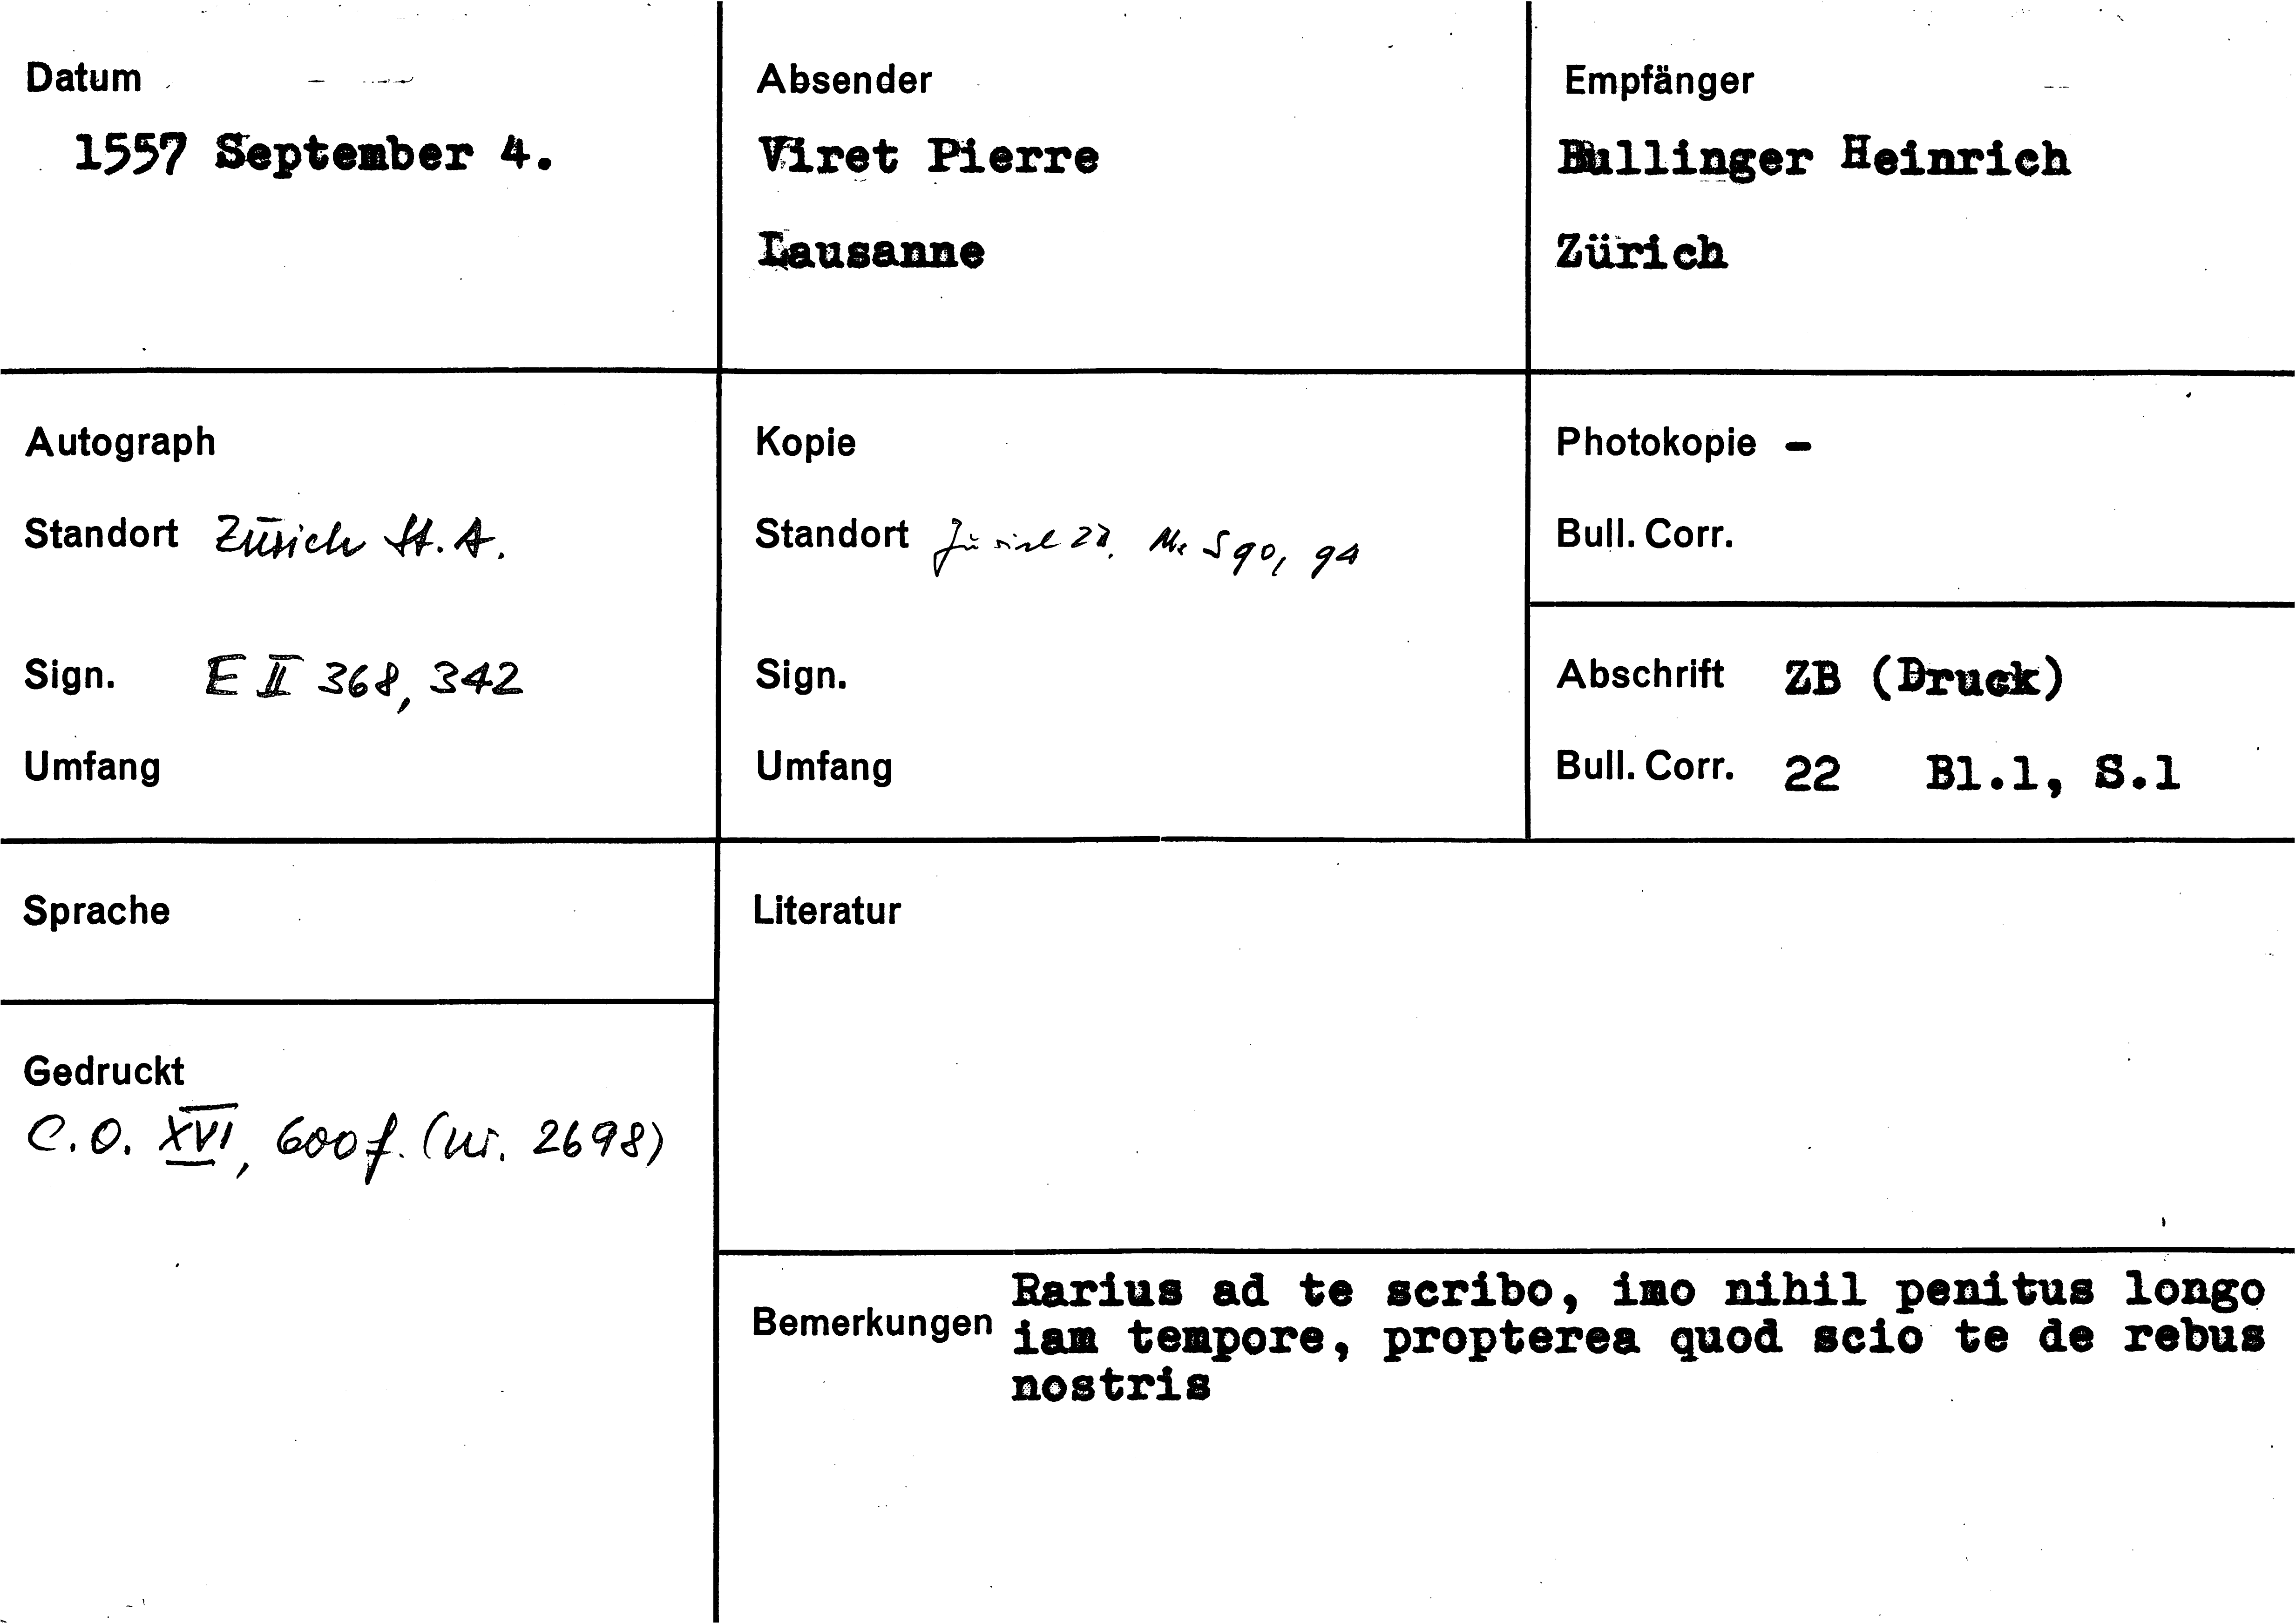 Datum
1557 September 4.
Absender
Viret Pierre
Lausanne
Empfänger
Bullinger Heinrich
Zürich
Autograph
Standort Zürich St. A.
Sign. E II 368, 342
Umfang
Kopie
Standort Zürich ZB, Ms S 90, 94
Sign.
Umfang
Photokopie -
Bull. Corr.
Abschrift ZB (Druck)
Bull. Corr. 22 Bl.1, S.1
Sprache
Gedruckt
C.O. XVI, 600 f. (Nr. 2698)
Literatur
Bemerkungen
Rarius ad te scribo, imo nihil penitus longo
iam tempore, propterea quod scio te de rebus
nostris